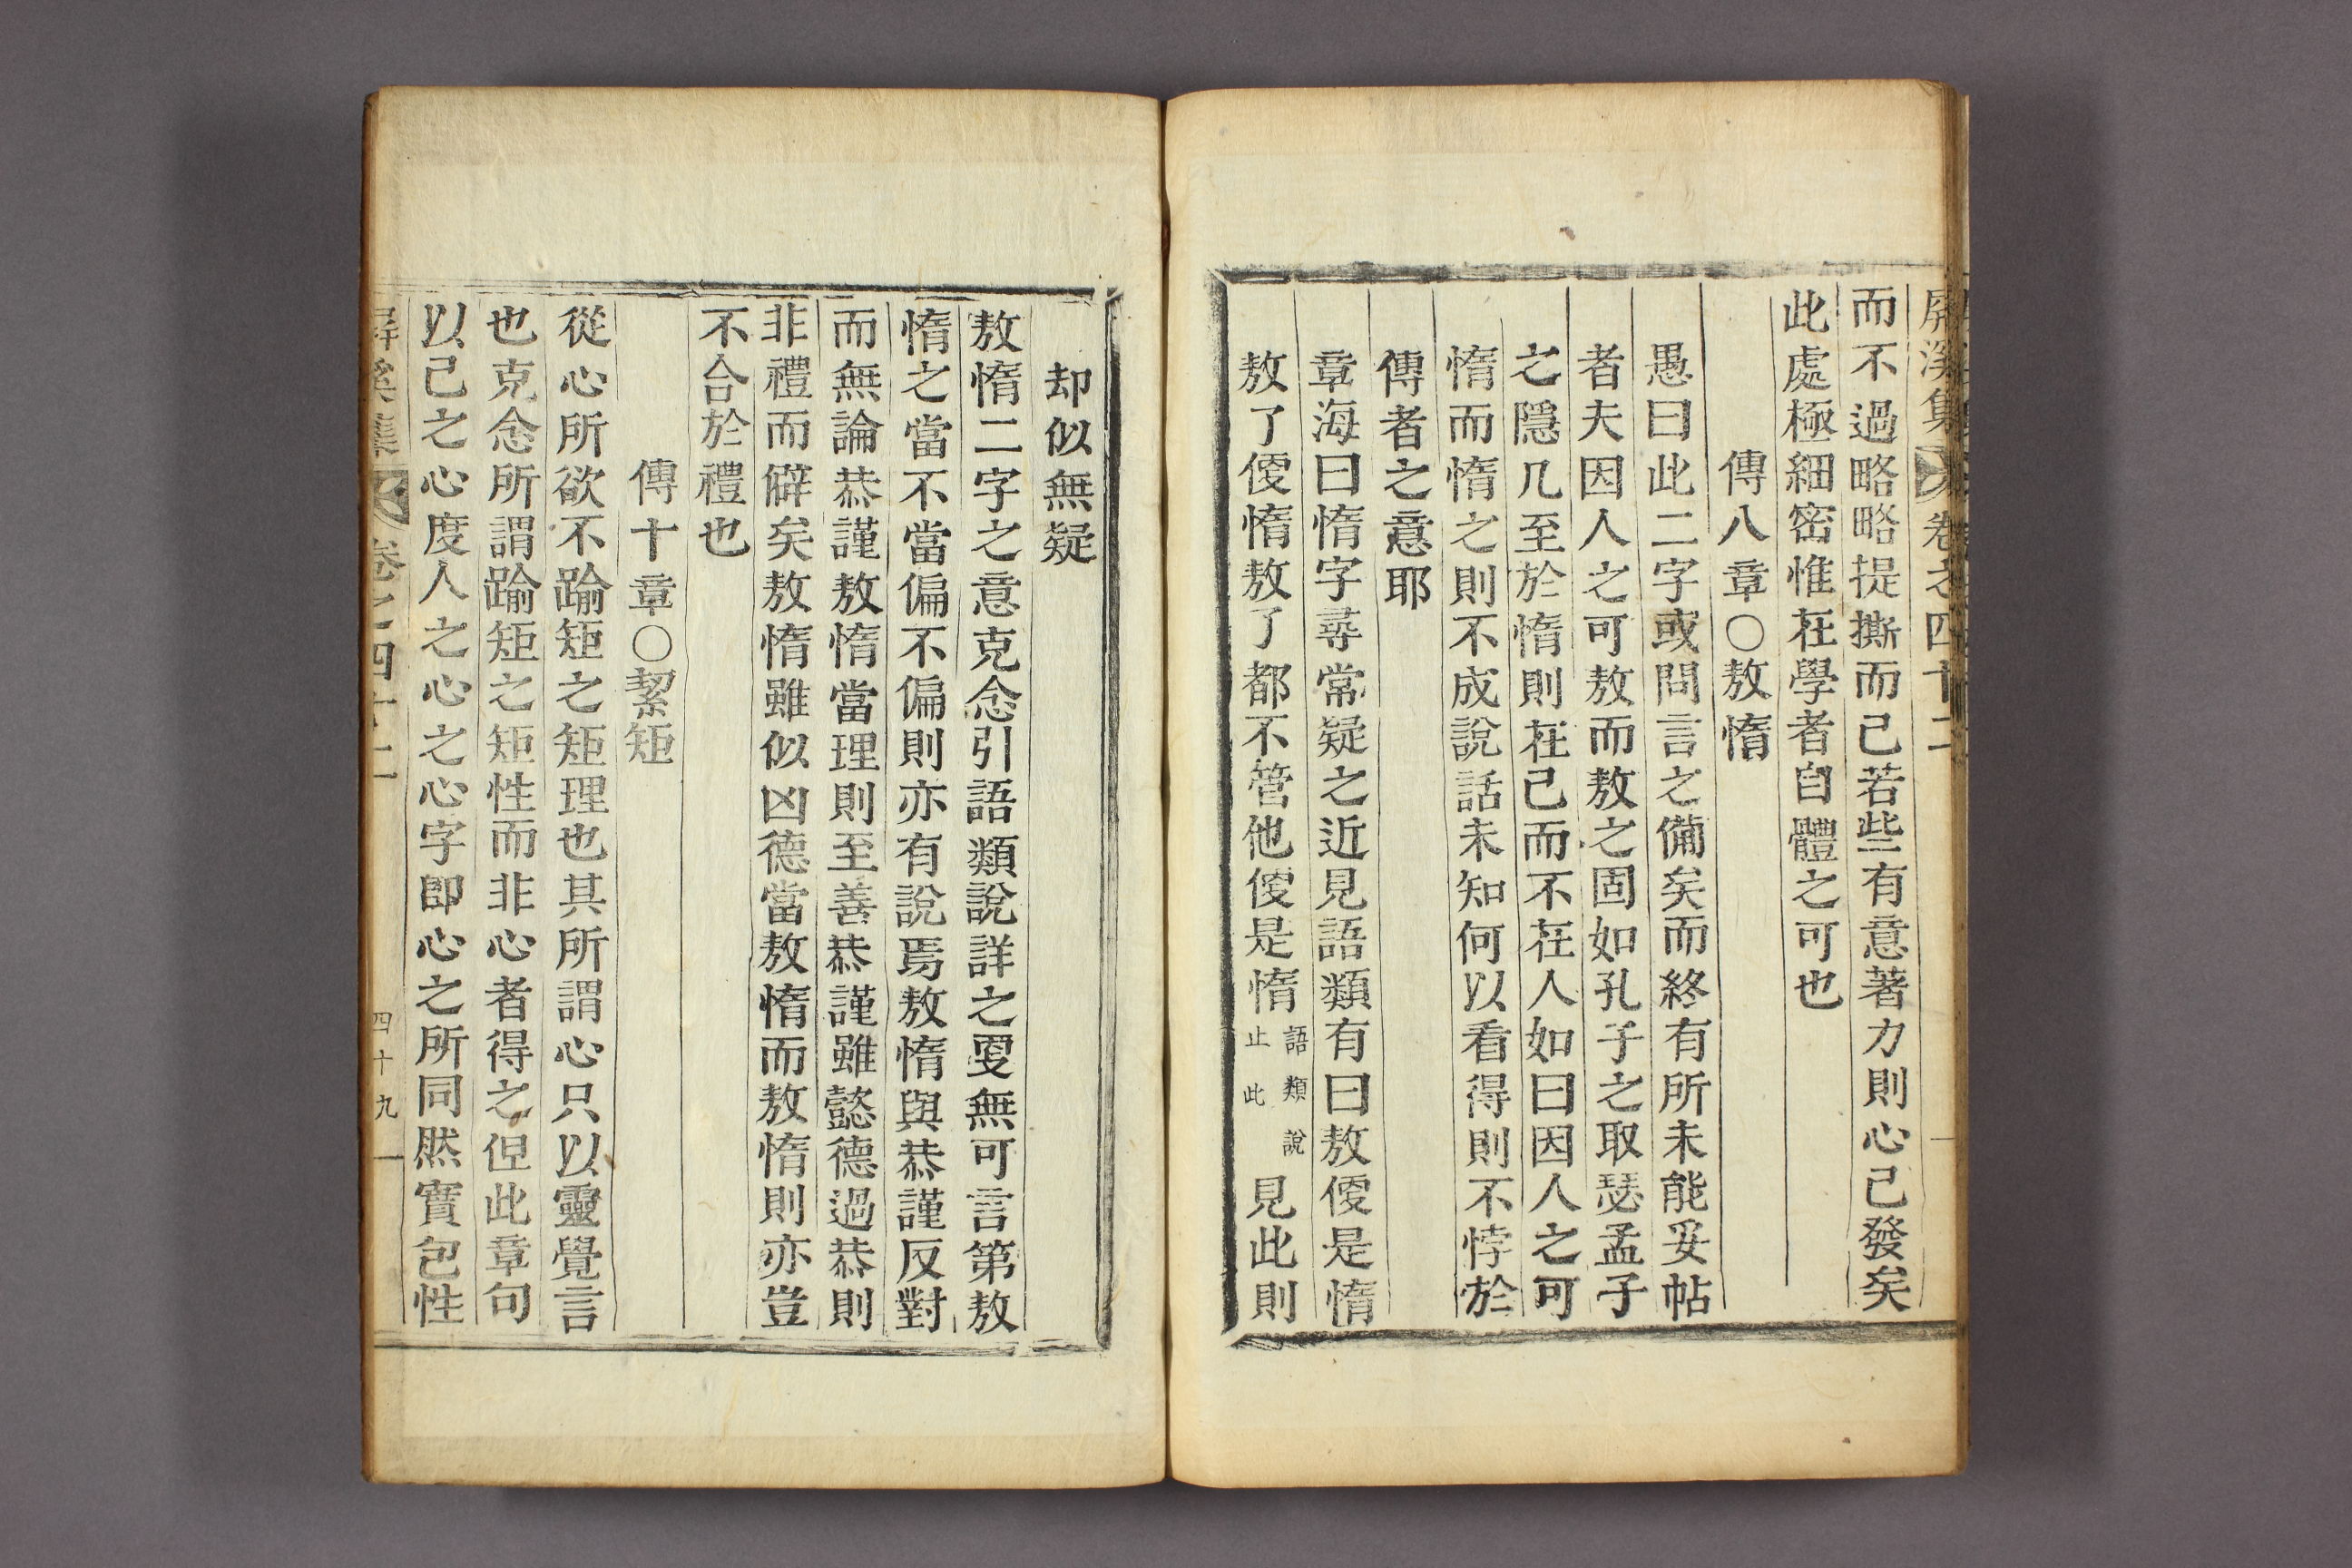 屛溪集 卷之四十二
而不過略略提撕而已若些有意著力則心已發矣
此處極細密惟在學者自體之可也
傳八章○敖惰
愚曰此二字或問言之備矣而終有所未能妥帖
者夫因人之可敖而敖之固如孔子之取瑟孟子
之隱几至於惰則在己而不在人如曰因人之可
惰而惰之則不成說話未知何以看得則不悖於
傳者之意耶
章海曰惰字尋常疑之近見語類有曰敖便是惰
敖了便惰敖了都不管他便是惰語類說止此見此則
却似無疑
敖惰二字之意克念引語類說詳之更無可言第敖
惰之當不當偏不偏則亦有說焉敖惰與恭謹反對
而無論恭謹敖惰當理則至善恭謹雖懿德過恭則
非禮而僻矣敖惰雖似凶德當敖惰而敖惰則亦豈
不合於禮也
傳十章○絜矩
從心所欲不踰矩之矩理也其所謂心只以靈覺言
也克念所謂踰矩之矩性而非心者得之但此章句
以己之心度人之心之心字卽心之所同然實包性
屛溪集 卷之四十二 四十九